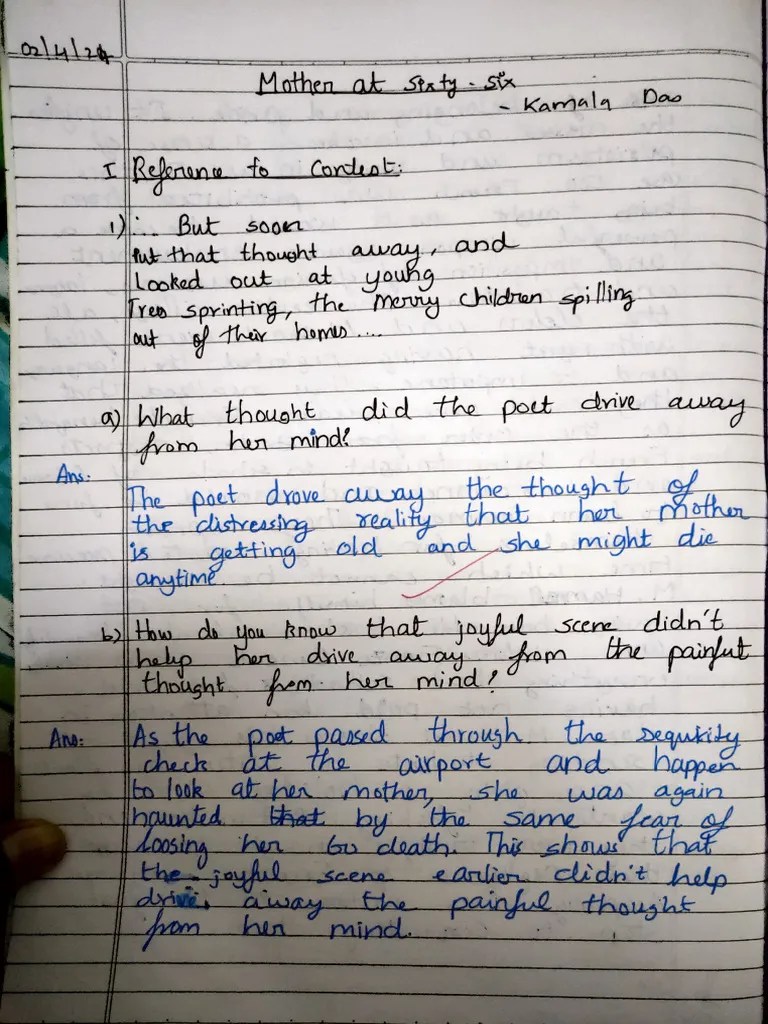 02/4/24
Mother at sixty-six
- Kamala Das
I Reference to Contest:
1) ... But soon
Put that thought away, and
Looked out at young
Trees sprinting, the merry children spilling
out of their homes....
a) What thought did the poet drive away
from her mind?
Ans:
The poet drove away the thought of
the distressing reality that her mother
is getting old and she might die
anytime
b) How do you know that joyful scene didn't
help her drive away from the painful
thought from her mind?
Ans: As the poet passed through the sequkity
check at the airport and happen
to look at her mother, she was again
haunted that by the same fear of
loosing her to death. This shows that
the joyful scene earlier didn't help
drive away the painful thought
from her mind.